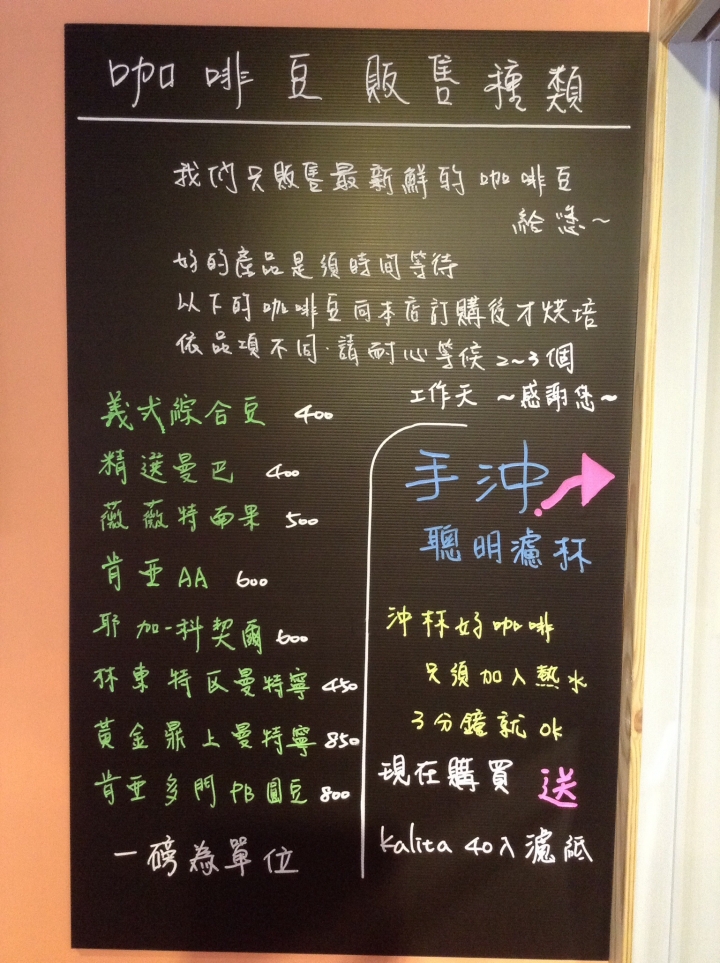 咖啡豆販售種類
我們只販售最新鮮的咖啡豆
給您~
好的產品是須時間等待
以下的咖啡豆向本店訂購後才烘培
依品項不同·請耐心等候2~3個
工作天~感謝您~
義式綜合豆 400
精選曼巴 400
薇薇特而果 500
肯亞AA 600
耶加-科契爾 600
林東特瓦曼特寧 450
黃金鼎上曼特寧 850
肯亞多門PB圓豆 800
一磅為單位
手沖
聰明濾杯
沖杯好咖啡
只須加入熱水
3分鐘就OK
現在購買 送
Kalita 40入濾紙